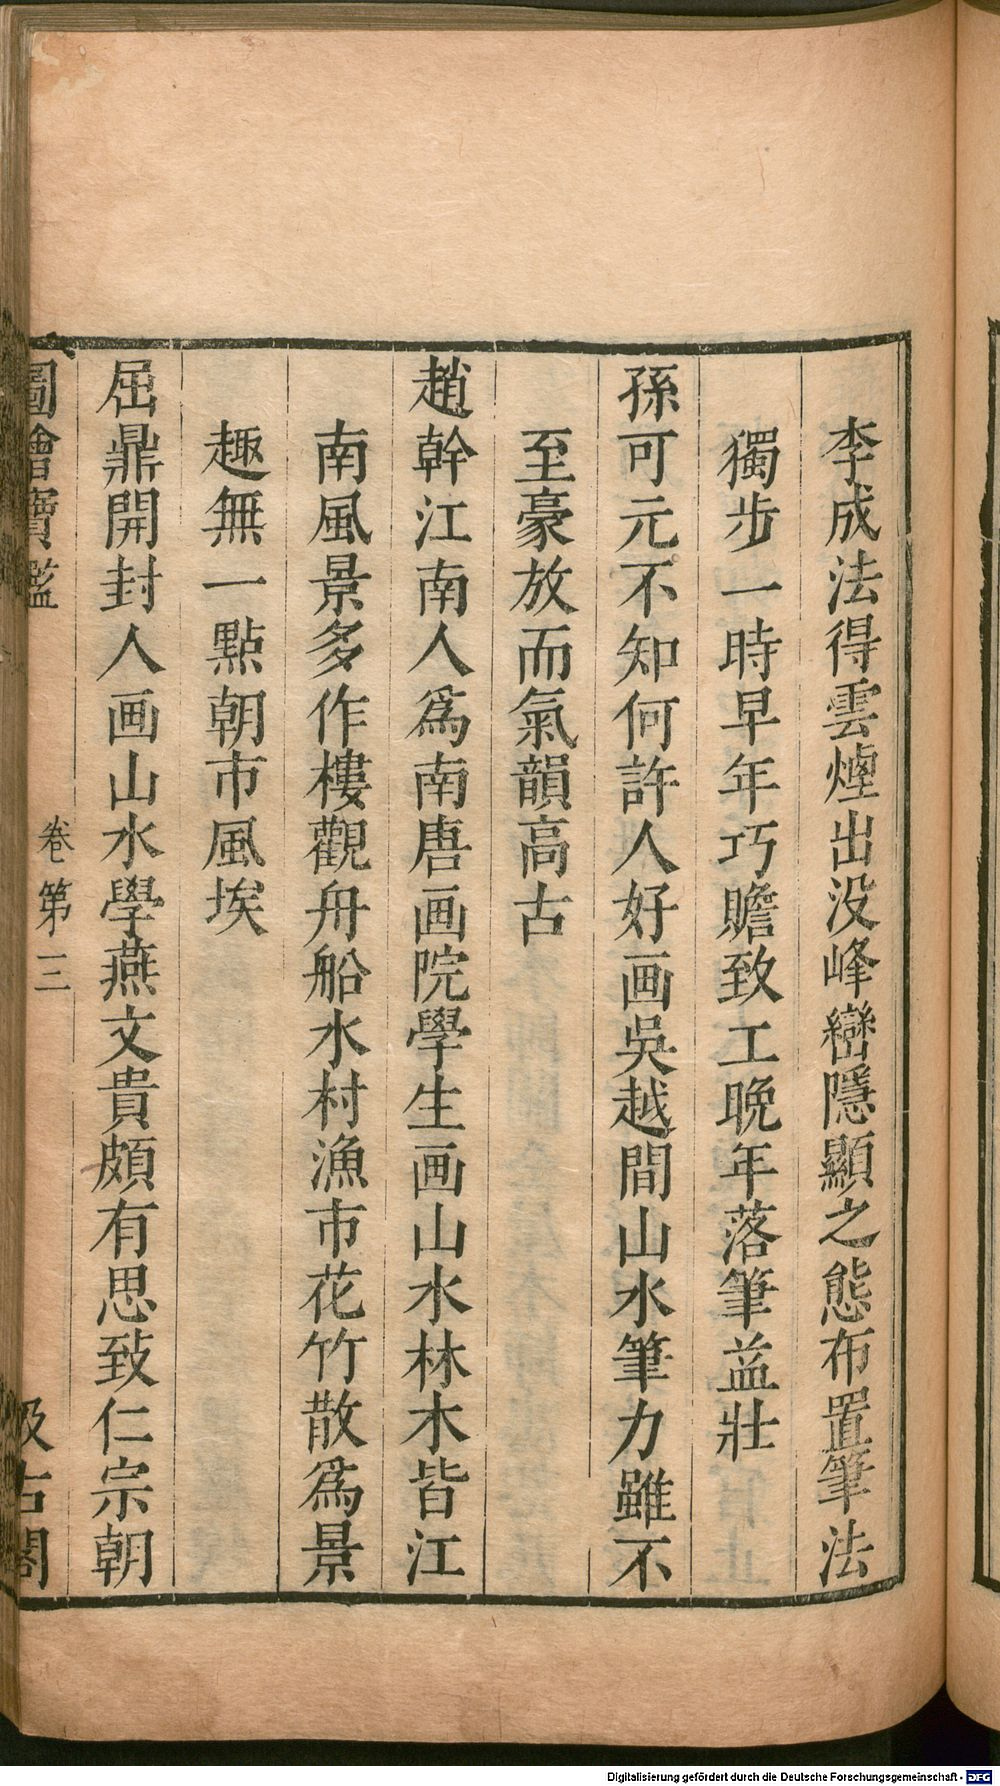 李成法得雲煙出没峰巒隱顯之態布置筆法
獨步一時早年巧贍致工晩年落筆益壯
孫可元不知何許人好画吳越間山水筆力雖不
至豪放而氣韻高古
趙幹江南人爲南唐画院學生画山水林木皆江
南風景多作樓觀舟船水村漁市花竹散爲景
趣無一點朝市風埃
屈鼎開封人画山水學燕文貴頗有思致仁宗朝
圖繪寳鑑 卷第三 汲古閣
Digitalisierung gefördert durch die Deutsche Forschungsgemeinschaft - DFG